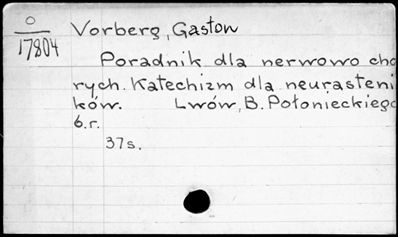 O
17804
Vorberg, Gaston
Poradnik dla nerwowo cho
rych. Katechizm dla neurasteni
ków. Lwów, B. Połonieckiego
b.r.
37s.